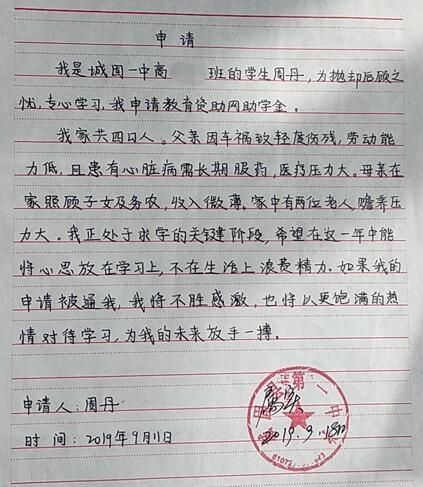 申请
我是城固一中高 班的学生周丹，为抛却后顾之
忧，专心学习，我申请教育资助网助学金。
我家共四口人。父亲因车祸致轻度伤残，劳动能
力低，且患有心脏病需长期服药，医疗压力大。母亲在
家照顾子女及务农，收入微薄。家中有两位老人，赡养压
力大。我正处于求学的关键阶段，希望在这一年中能
将心思放在学习上，不在生活上浪费精力。如果我的
申请被通我，我将不胜感激，也将以更饱满的热
情对待学习，为我的未来放手一搏。
申请人：周丹
时间：2019年9月11日
第一中
2019.9.18